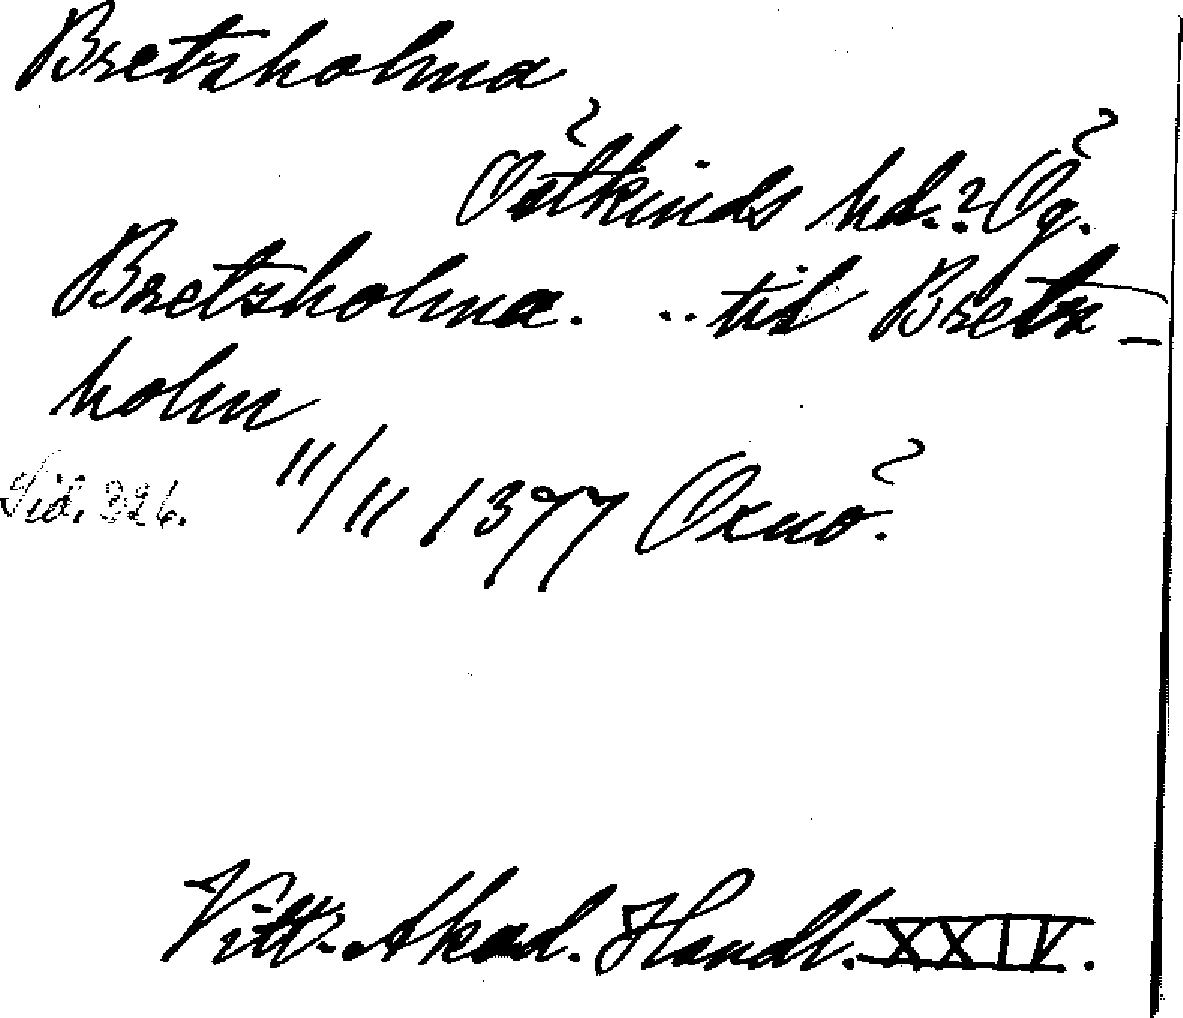 Bretzholma
Östkinds hd.? Ög.
Bretzholma. .. til Bretz-
holm
Sid. 326. 11/11 1377 Oxnö.
Vitt. Akad. Handl. XXIV.